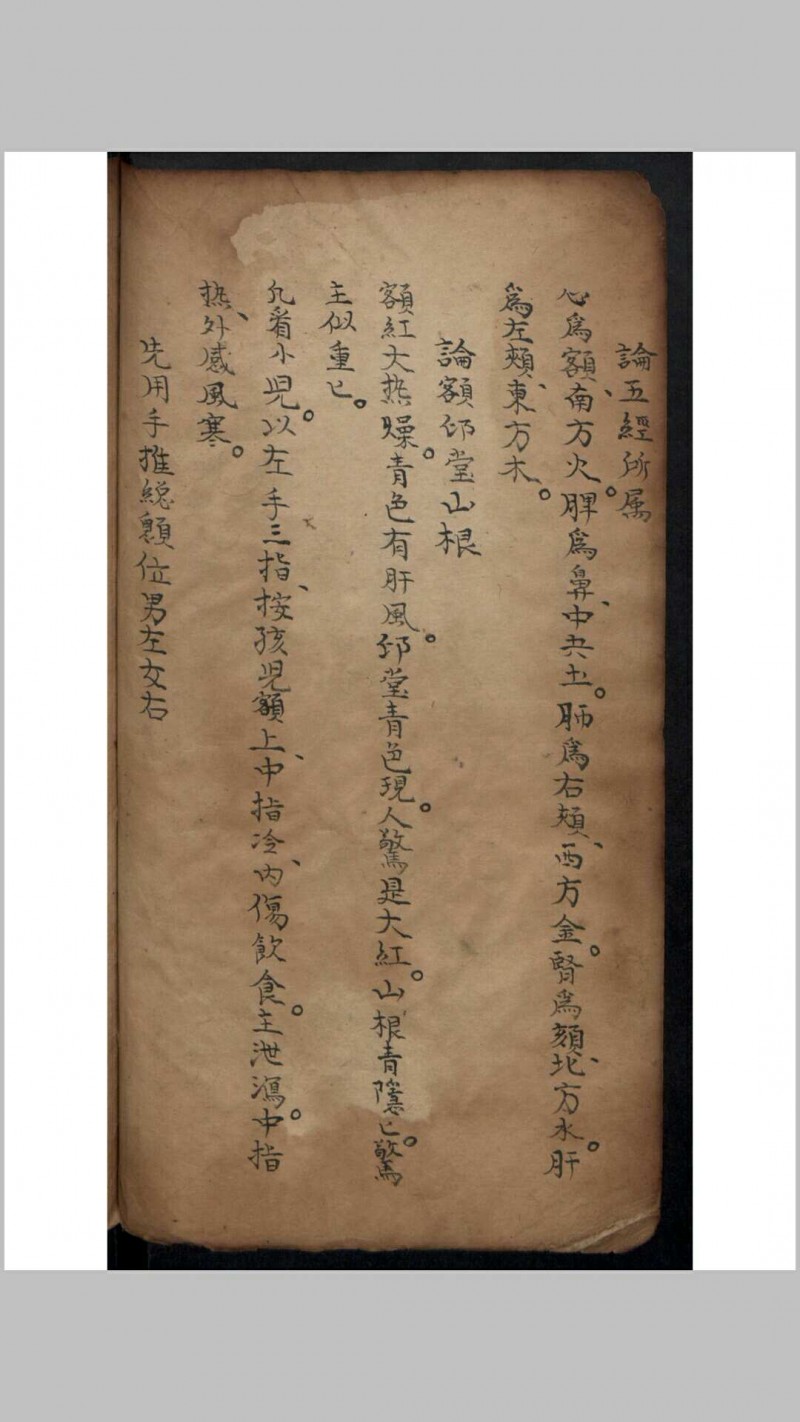 論五經所属
心爲額、南方火。脾爲鼻、中央土。肺爲右頬、西方金。腎爲頦、北方水。肝
爲左頬、東方木。
論額印堂山根
額紅大热燥。青色有肝風。印堂青色現。人驚是大紅。山根青隱匕。驚
主似重匕。
凡看小児。以左手三指、按孩児額上、中指冷、内傷飲食。主泄瀉。中指
热、外感風寒。
先用手推総位男左女右